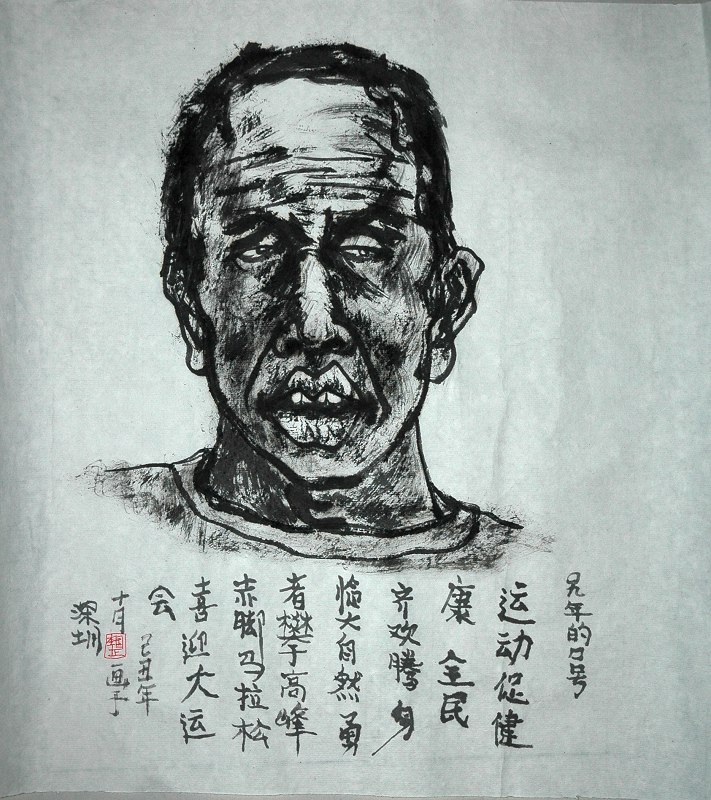 〇九年的口号
运动促健
康 全民
齐欢腾 身
临大自然勇
者攀于高峰
赤脚马拉松
喜迎大运
会
己丑年
十月 画于
深圳